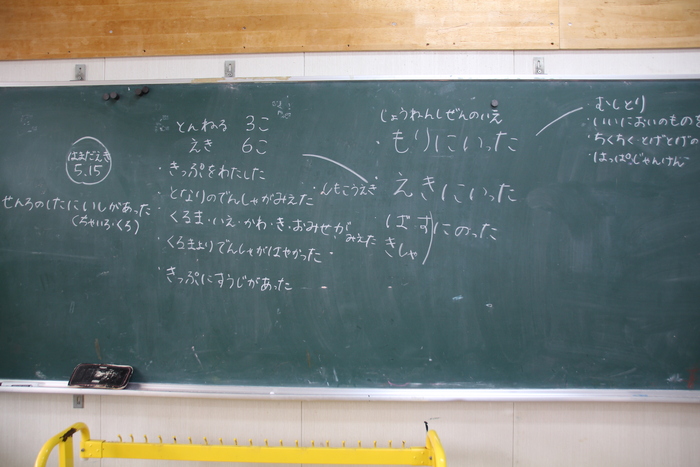 じょうねんしぜんのいえ
・もりにいった
・むしとり
・いいにおいのものを
・ちくちく・とげとげの
・はっぱじゃんけん
・えきにいった
ばすにのった
きしゃ
とんねる 3こ
えき 6こ
・きっぷをわたした
・となりのでんしゃがみえた
・くるま・いえ・かわ・き・おみせがみえた
・くるまよりでんしゃがはやかった
・きっぷにすうじがあった
はまだえき
5.15
せんろのしたにいしがあった
(ちゃいろ・くろ)